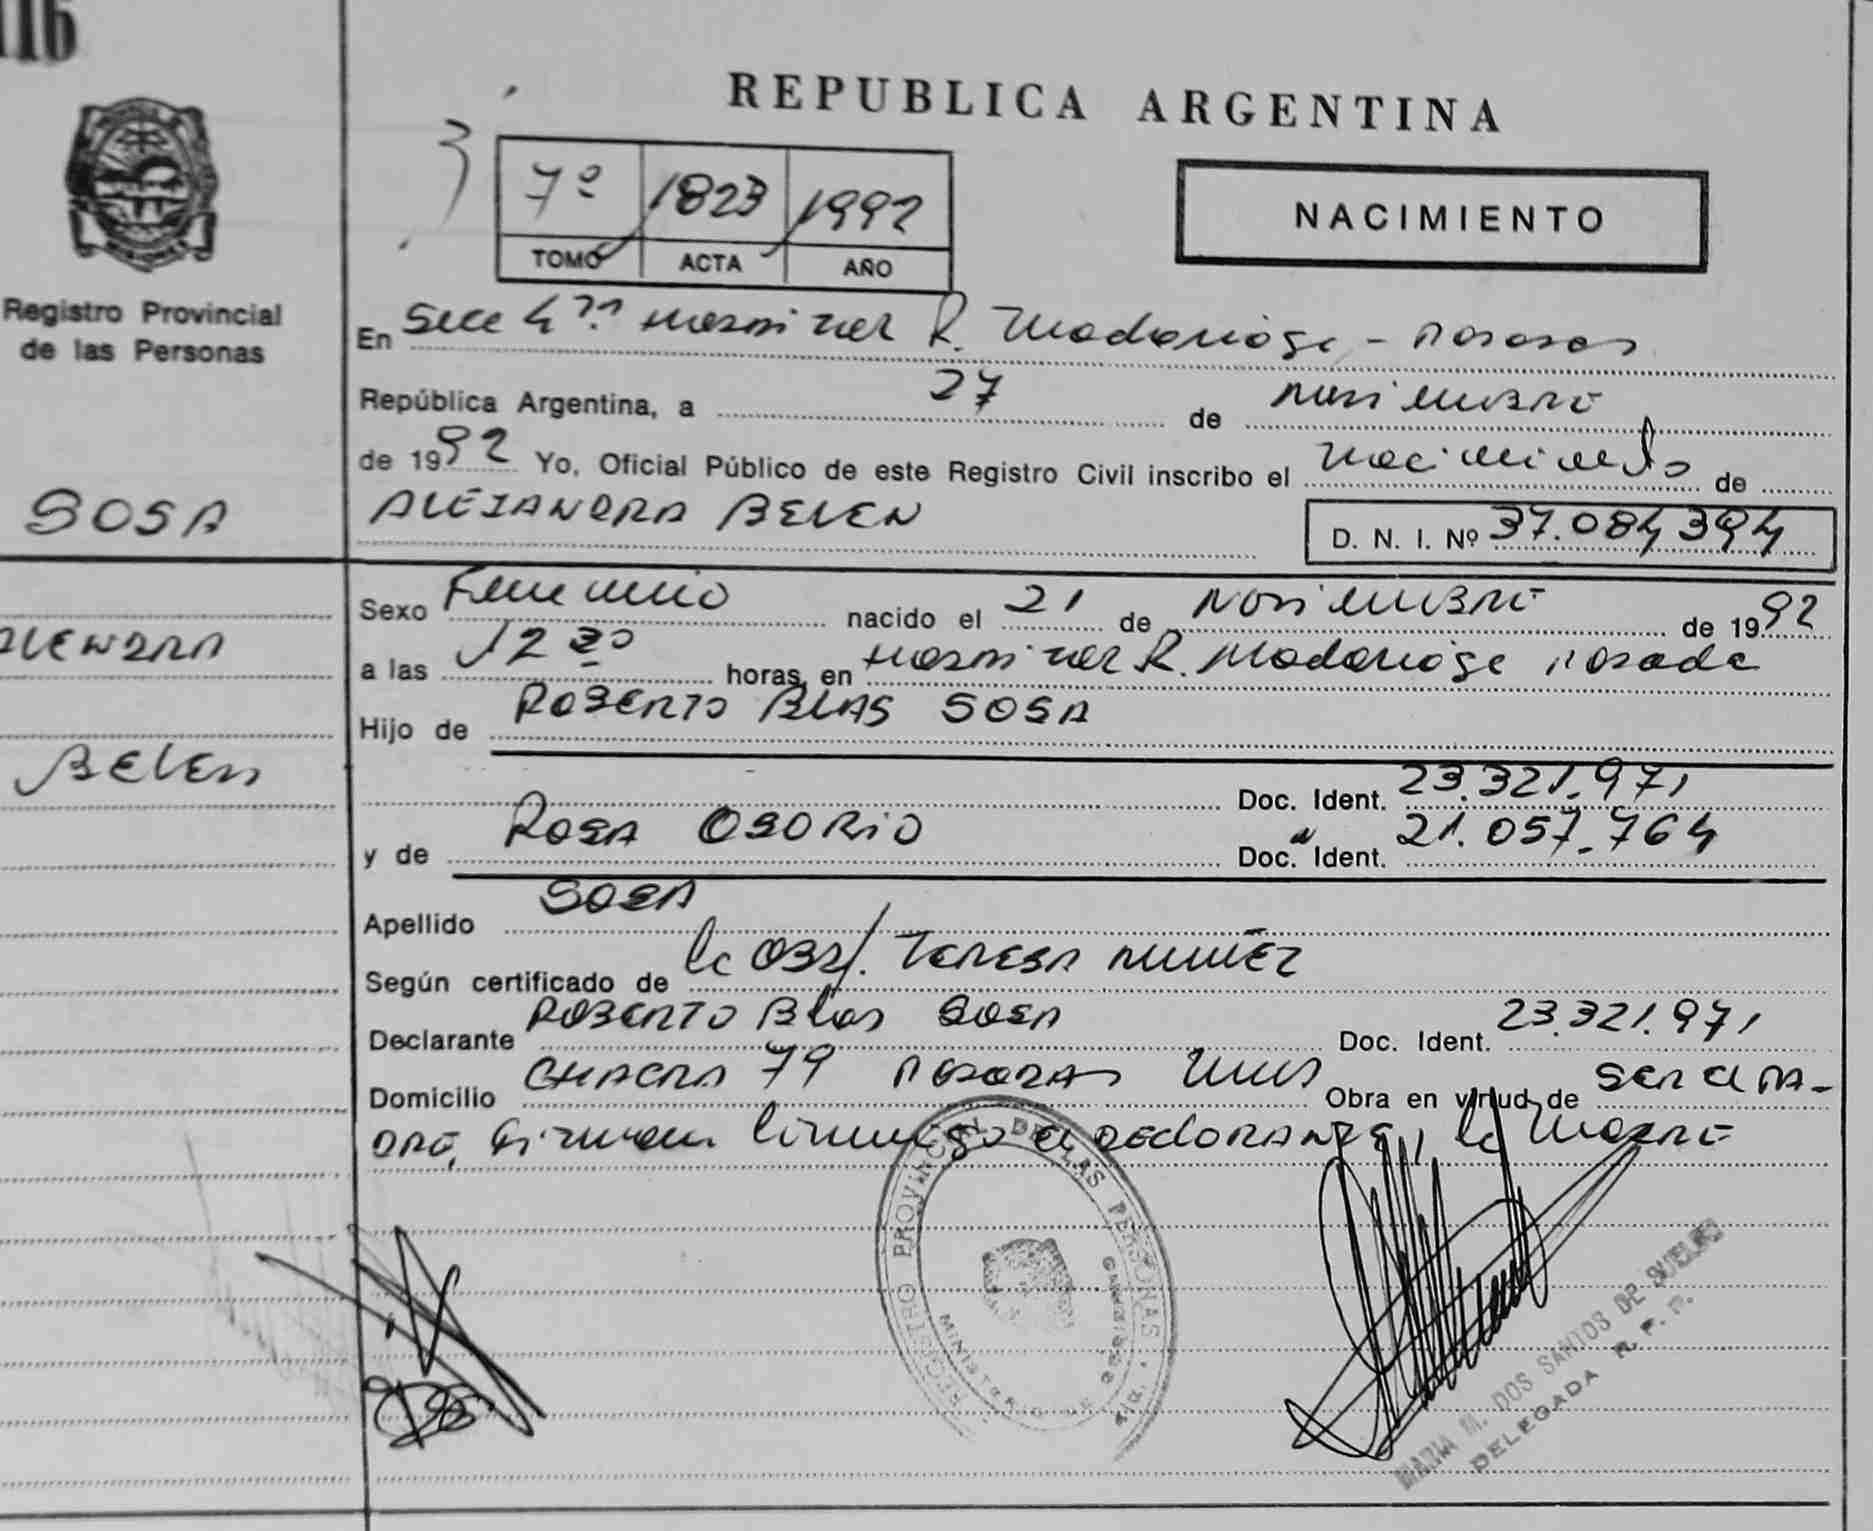 116
REPUBLICA ARGENTINA
7º 1823 1992
TOMO ACTA AÑO
NACIMIENTO
Registro Provincial
de las Personas
En Secc 4ª Hospital R. Madariaga - Posadas
República Argentina, a 27 de Noviembre
de 1992 Yo, Oficial Público de este Registro Civil inscribo el nacimiento de
SOSA
ALEJANDRA BELEN
D. N. I. Nº 37.084.394
Sexo Femenino nacido el 21 de Noviembre de 1992
a las 12 30 horas, en Hospital R. Madariaga Posadas
Hijo de ROBERTO BLAS SOSA
BELEN
Doc. Ident. 23.321.971
y de ROSA OSORIO Doc. Ident. 21.057.764
Apellido SOSA
Según certificado de la Obst. TERESA NUÑEZ
Declarante ROBERTO Blas SOSA Doc. Ident. 23.321.971
Domicilio CHACRA 79 POSADAS Mnes Obra en virtud de SER el PA-
DRE, Firman conmigo el DECLARANTE, la MADRE
REGISTRO PROVINCIAL DE LAS PERSONAS
MINISTERIO DE GOBIERNO
MARIA M. DOS SANTOS DE
DELEGADA R. P. P.